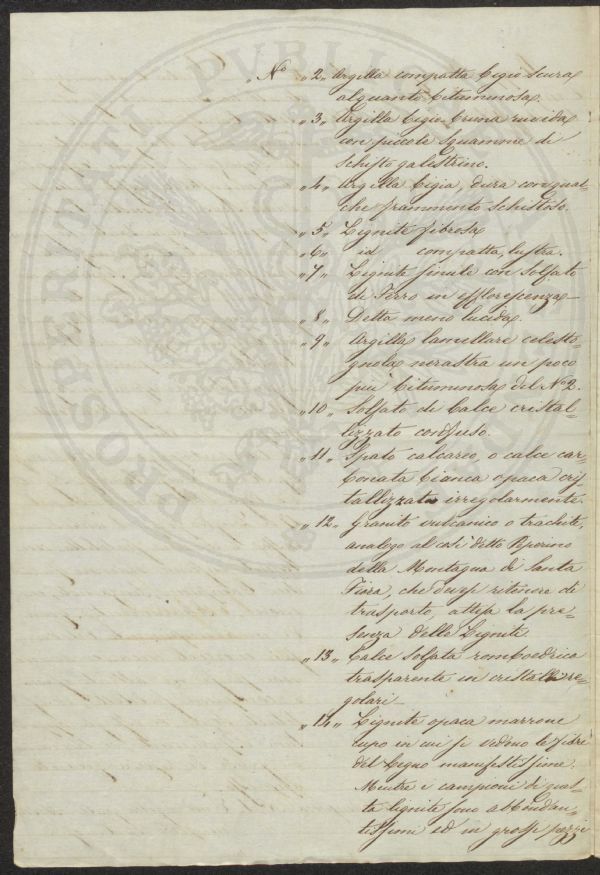 N.º „2„ Argilla compatta bigio scura
alquanto bituminosa.
„3„ Argilla bigio bruna ruvida
con piccole squamme di
schisto galestrino.
„4„ Argilla bigia, dura con qual=
che frammento schistoso.
„5„ Lignite fibrosa
„6„ id compatta, lustra.
„7„ Lignite simile con solfato
di Ferro in efflorescenza
„8„ Detta meno lucida.
„9„ Argilla lamellare celesto=
gnola nerastra un poco
più bituminosa del Nº 2.
„10„ Solfato di Calce cristal=
lizzato confuso.
„11„ Spato calcareo, o calce car=
bonata bianca opaca cris
tallizzata irregolarmente.
„12„ Granito vulcanico o trachite,
analogo al così detto Peperino
della Montagna di Santa
Fiora, che devesi ritenere di
trasporto attesa la pre=
senza della Lignite.
„13„ Calce solfata romboedrica
trasparente in cristalli re=
golari
„14„ Lignite opaca marrone
cupo in cui si vedono le fibre
del Legno manifestissime.
Mentre i campioni di ques=
ta lignite sono abbondan=
tissimi ed in grossi pezzi
PROSPERITATI PUBLICAE